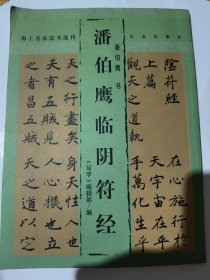 海上名家法书选刊
潘伯鹰书
潘伯鹰临阴符经
《写字》编辑部/编
陰符經
上篇
觀天之道執
天之行盡矣
天有五賊見
之者昌五賊
在心施行于
天宇宙在乎
手萬化生乎
身天性人也
人心機也立
天之道以定